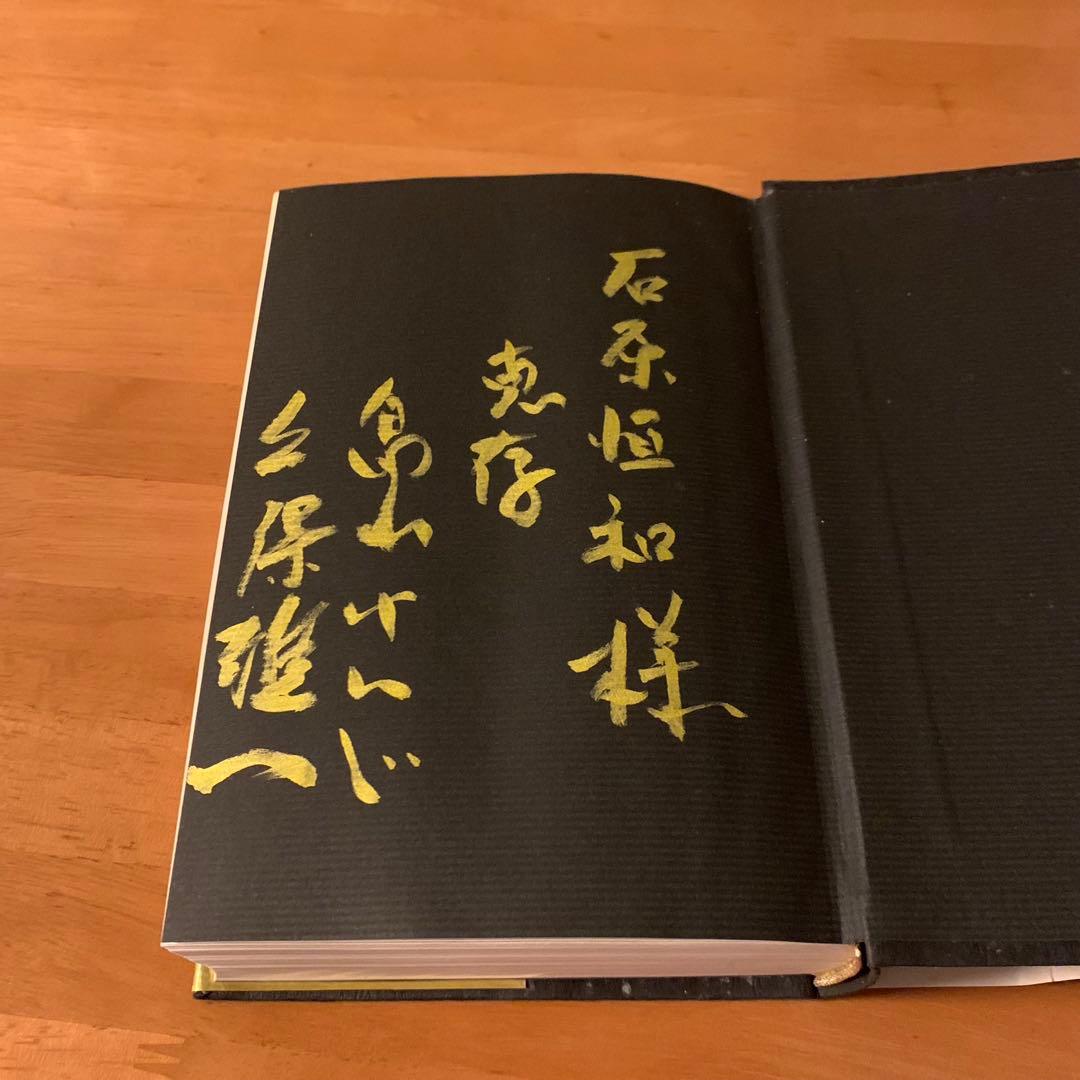 石原恒和様
恵存
畠山けんじ
久保雅一